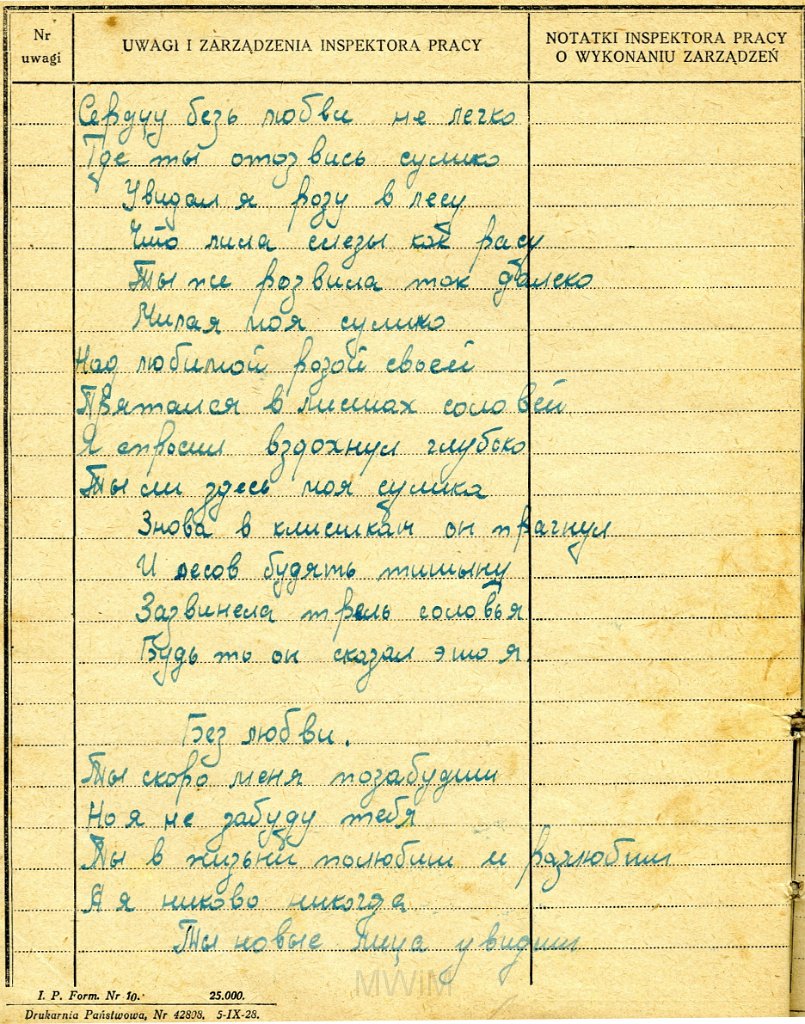 Nr
uwagi
UWAGI I ZARZĄDZENIA INSPEKTORA PRACY
NOTATKI INSPEKTORA PRACY
O WYKONANIU ZARZĄDZEŃ
Сердцу безь любви не легко
Где ты отозвись сулико
Увидал я розу в лесу
Что лила слезы как расу
Ты же розвила так далеко
Милая моя сулико
Над любимой розой своей
Прятался в листах соловей
Я спросил вздохнул глубоко
Ты ли здесь моя сулика
Знова в он
И лесов будять тишыну
Зазвинела трель соловья
Будь то он сказал это я
Без любви.
Ты скоро меня позабудиш
Но я не забуду тебя
Ты в жизьни полюбиш и разлюбиш
А я никово никогда
Ты новые лица увидиш
MWiM
I. P. Form. Nr 10. 25.000.
Drukarnia Państwowa, Nr 42898. 5-IX-28.